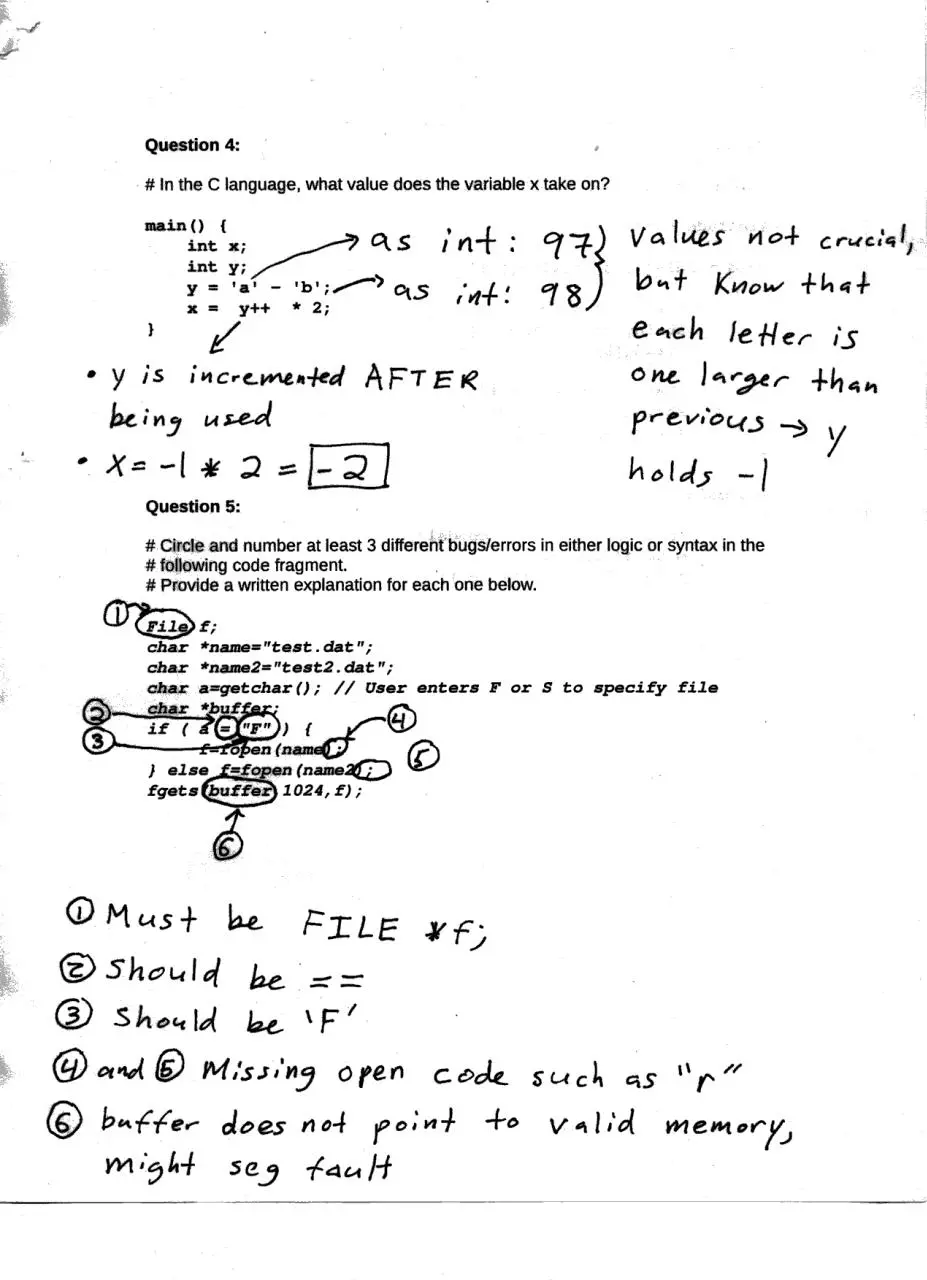 Question 4:
# In the C language, what value does the variable x take on?
main() {
int x;
int y;
y = 'a' - 'b';
x = y++ * 2;
}
as int : 97
as int: 98
} values not crucial,
but know that
each letter is
one larger than
previous → y
holds -1
• y is incremented AFTER
being used
• X= -1 * 2 = -2
Question 5:
# Circle and number at least 3 different bugs/errors in either logic or syntax in the
# following code fragment.
# Provide a written explanation for each one below.
① File f;
char *name="test.dat";
char *name2="test2.dat";
char a=getchar(); // User enters F or S to specify file
char *buffer;
② if ( a = "F") ) { ④
③ f=fopen(name) ; ⑤
} else f=fopen(name2) ;
fgets(buffer, 1024,f);
⑥
① Must be FILE *f;
② Should be ==
③ Should be 'F'
④ and ⑤ Missing open code such as "r"
⑥ buffer does not point to valid memory,
might seg fault